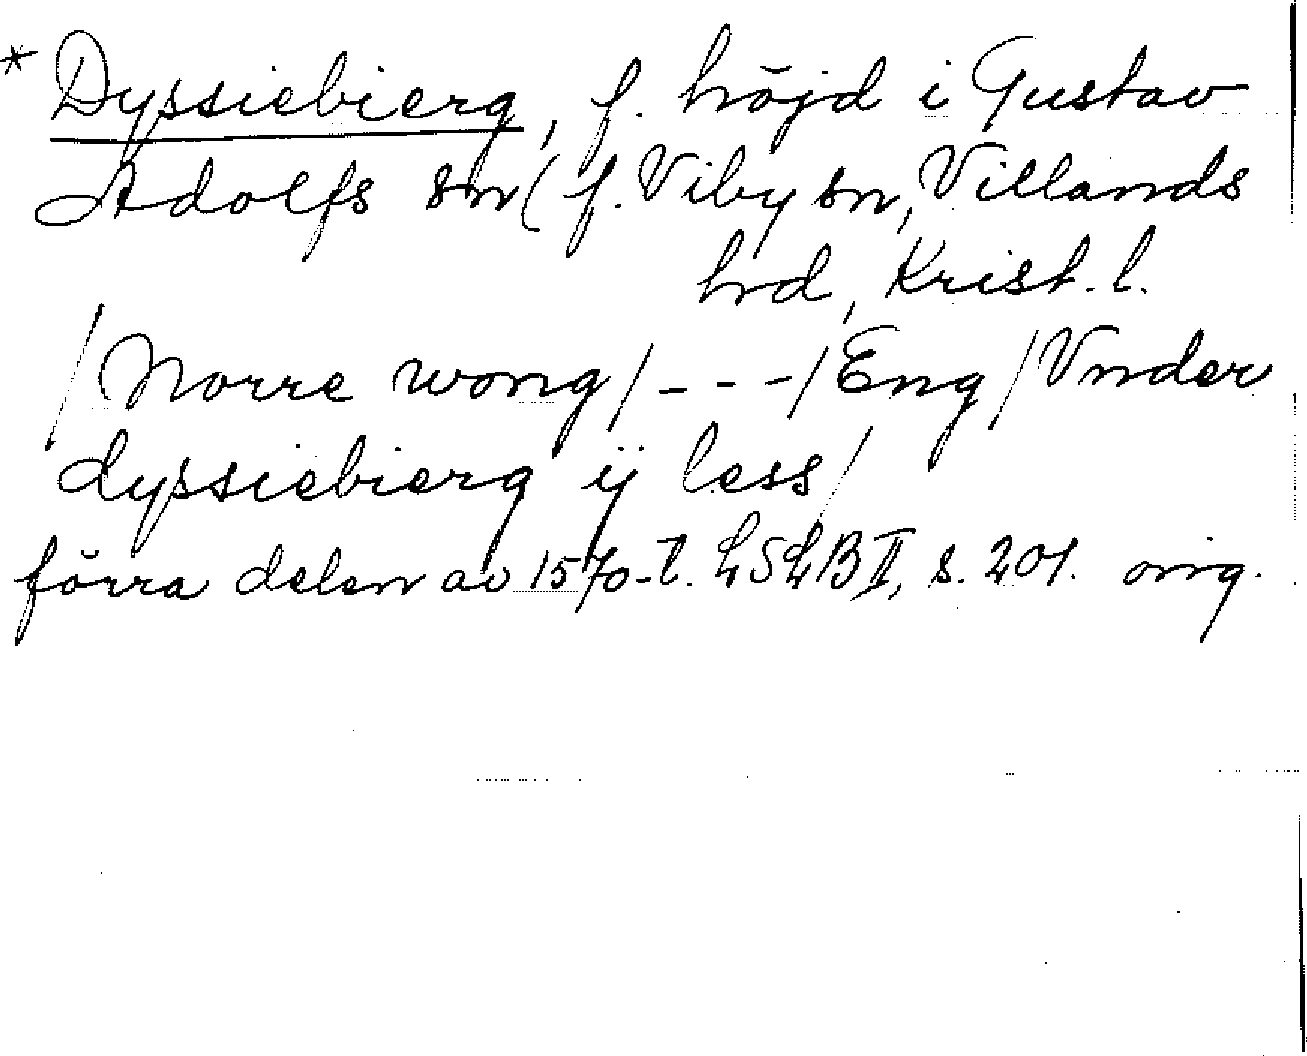 * Dyssiebierg, f. höjd i Gustav
Adolfs sn (f. Viby sn, Villands
hrd, Krist. l.
/Norre wong/ - - - /Eng/Vnder
dyssiebierg ij less/
förra delen av 1570-t. LSLB II, s. 201. orig.